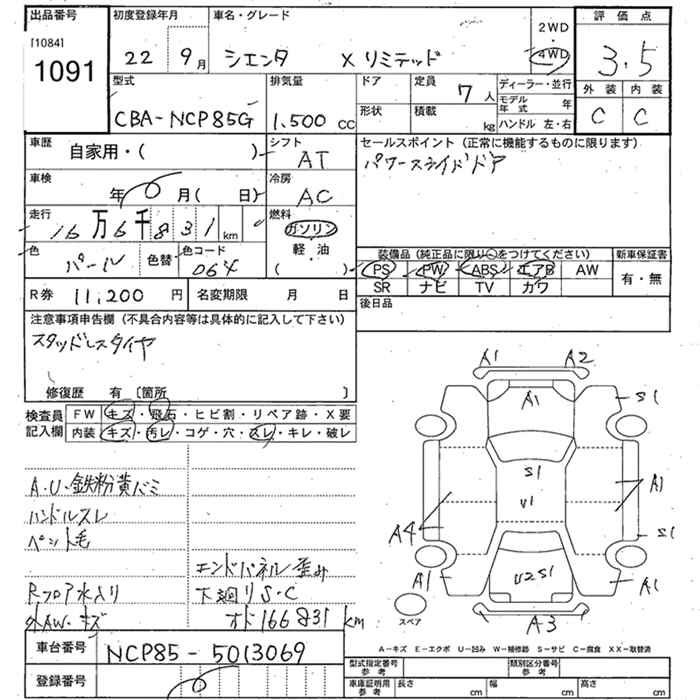 出品番号
[1084]
1091
初度登録年月
22 9月
車名・グレード
シエンタ X リミテッド
2WD
4WD
評価点
3.5
外装 内装
C C
型式
CBA-NCP85G
排気量
1,500 CC
ドア
形状
定員 7人
積載 kg
ディーラー・並行
モデル年式 年
ハンドル 左・右
車歴
自家用・( )
シフト
AT
セールスポイント (正常に機能するものに限ります)
パワースライドドア
車検
年 0 月( 日)
冷房
AC
走行
16万6千831km
燃料
ガソリン
軽・油
( )
色
パール
色替
色コード
064
装備品(純正品に限り○をつけてください)
PS PW ABS エアB AW
SR ナビ TV カワ
新車保証書
有・無
R券 11,200 円
名変期限 月 日
後日品
注意事項申告欄 (不具合内容等は具体的に記入して下さい)
スタッドレスタイヤ
修復歴 有 〔箇所 〕
検査員記入欄
FW キズ・飛石・ヒビ割・リペア跡・X要
内装 キズ・汚レ・コゲ・穴・スレ・キレ・破レ
A・U・鉄粉黄バミ
ハンドルスレ
ペット毛
エンドパネル歪み
Rフロア水入り 下廻りS・C
外AW・キズ オド166831km
A1 A2
A1
S1
S1
V1
A1
A4
S1
A1
U2S1
A1
A3
スペア
A-キズ E-エクボ U-凹み W-補修跡 S-サビ C-腐食 XX-取替済
車台番号
NCP85-5013069
登録番号
0
型式指定番号 参考
類別区分番号 参考
車庫証明用 参考
長さ cm
幅 cm
高さ cm